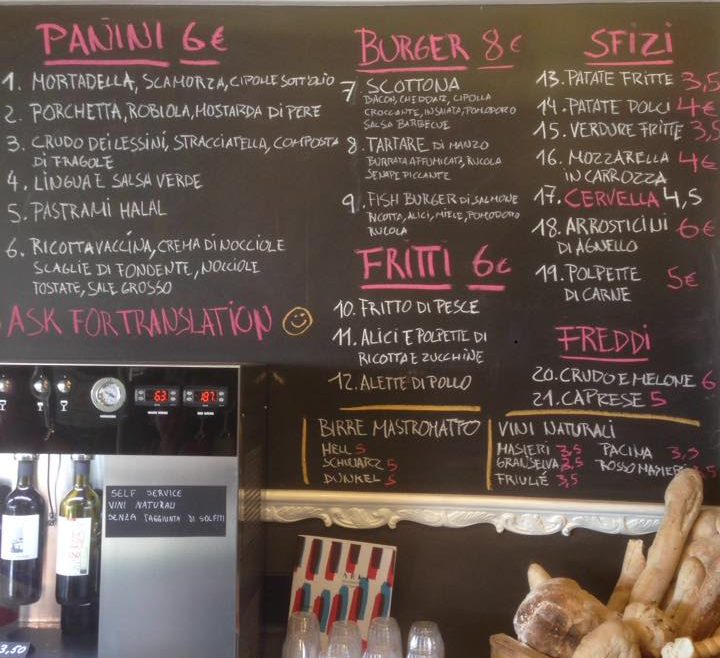 PANINI 6€
1. MORTADELLA, SCAMORZA, CIPOLLE SOTT'OLIO
2. PORCHETTA, ROBIOLA, MOSTARDA DI PERE
3. CRUDO DEI LESSINI, STRACCIATELLA, COMPOSTA
DI FRAGOLE
4. LINGUA E SALSA VERDE
5. PASTRAMI HALAL
6. RICOTTA VACCINA, CREMA DI NOCCIOLE
SCAGLIE DI FONDENTE, NOCCIOLE
TOSTATE, SALE GROSSO
ASK FOR TRANSLATION
BURGER 8€
7 SCOTTONA
BACON, CHEDDAR, CIPOLLA
CROCCANTE, INSALATA, POMODORO
SALSA BARBECUE
8. TARTARE DI MANZO
BURRATA AFFUMICATA, RUCOLA
SENAPE PICCANTE
9. FISH BURGER DI SALMONE
RICOTTA, ALICI, MIELE, POMODORO
RUCOLA
FRITTI 6€
10. FRITTO DI PESCE
11. ALICI E POLPETTE DI
RICOTTA E ZUCCHINE
12. ALETTE DI POLLO
SFIZI
13. PATATE FRITTE 3,5
14. PATATE DOLCI 4€
15. VERDURE FRITTE 3,5
16. MOZZARELLA 4€
IN CARROZZA
17. CERVELLA 4,5
18. ARROSTICINI 6€
DI AGNELLO
19. POLPETTE 5€
DI CARNE
FREDDI
20. CRUDO E MELONE 6
21. CAPRESE 5
BIRRE MASTROMATTO
HELL 5
SCHWARZ 5
DUNKEL 5
VINI NATURALI
MASIERI 3,5 PACINA 3,5
GRANSELVA 3,5 ROSSO MASIERI 3,5
FRIULIÉ 3,5
63 187
SELF SERVICE
VINI NATURALI
SENZA L'AGGIUNTA DI SOLFITI
3,50